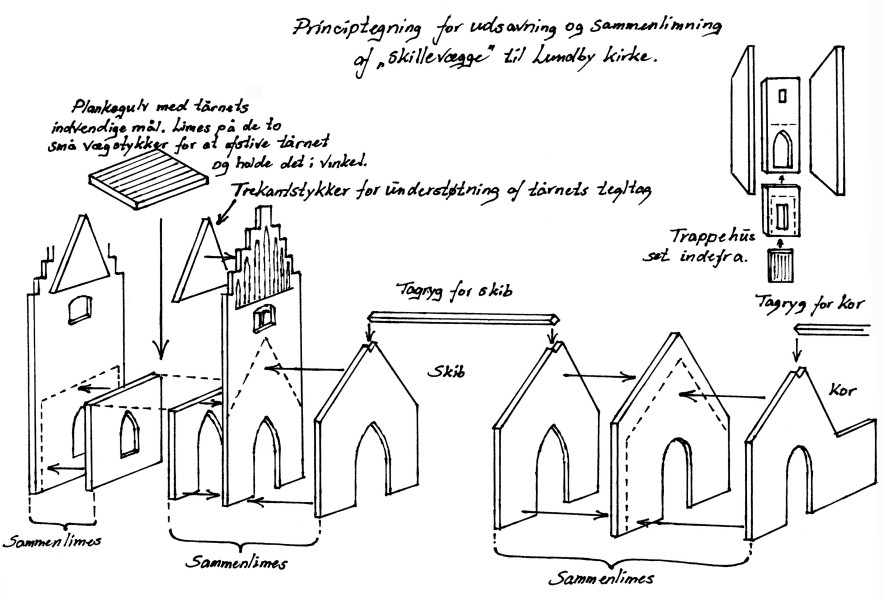 Principtegning for udsavning og sammenlimning
af „Skillevægge" til Lundby kirke.
Plankegulv med tårnets
indvendige mål. Limes på de to
små vægstykker for at afstive tårnet
og holde det i vinkel.
Trekantstykker for understøtning af tårnets tegltag
Trappehus
set indefra.
Tagryg for skib
Tagryg for Kor
Skib
Kor
Sammenlimes
Sammenlimes
Sammenlimes